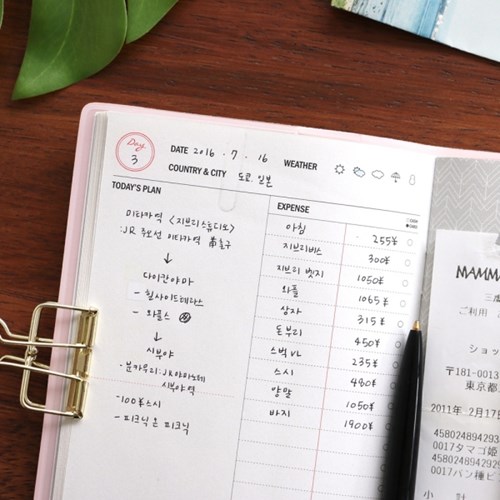 Day
3
DATE 2016 . 7 . 16 WEATHER
COUNTRY & CITY 도쿄, 일본
TODAY'S PLAN
미타카역 <지브리스튜디오>
:JR 주오선 미타카역 출구
↓
다이칸야마
- 힐사이드테라스
- 와플스
↓
시부야
- JR야마노테
시부야역
-100¥스시
- 피크닉 온 피크닉
EXPENSE
아침 255¥
지브리버스 300¥
지브리 벳지 1050¥
와플 1065¥
상자 315¥
돈부리 450¥
스벅 VL 235¥
스시 480¥
양말 1050¥
바지 1900¥
MAMMA
三鷹
ご利用
ショッ
〒181-0013
東京都
2011年 2月17
4580248942
0017タマゴ姫
4580248942929
0017パン種ピ
小 計